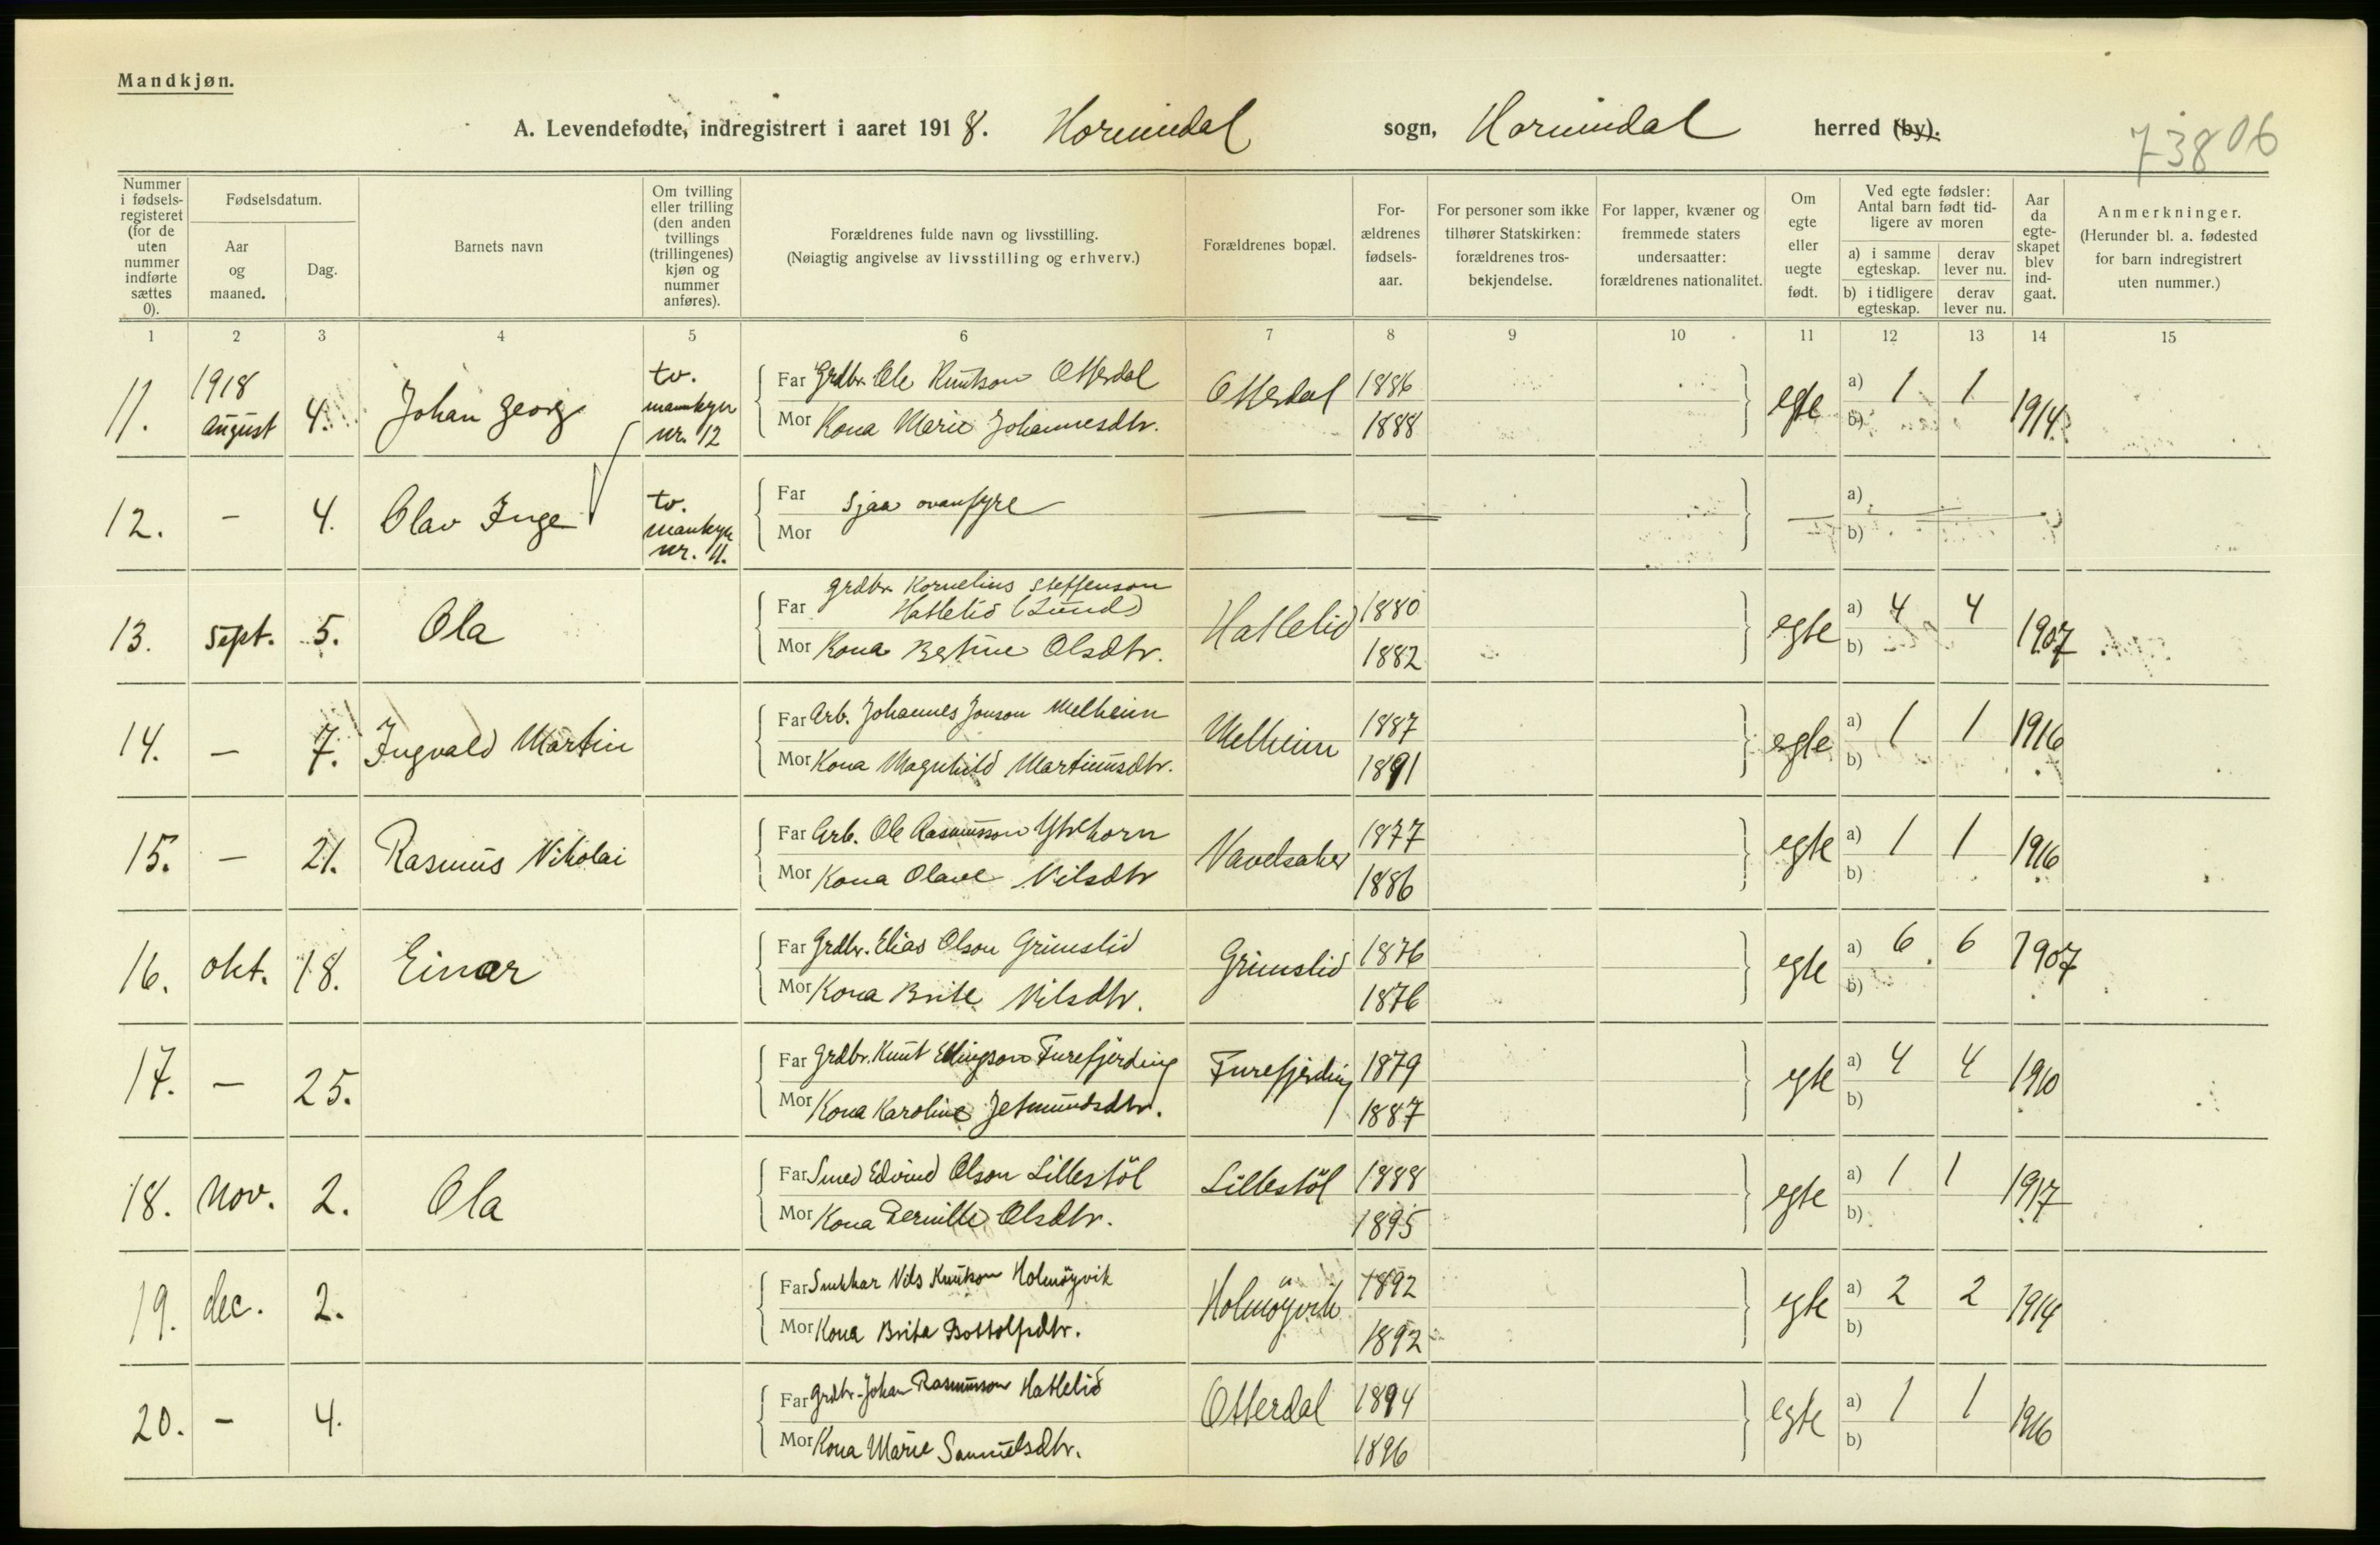 Mandkjøn.
A. Levendefødte, indregistrert i aaret 1918. Hornindal sogn, Hornindal herred (by).
73806
Nummer i fødsels-registeret (for de uten nummer indførte sættes 0).
Fødselsdatum.
Aar og maaned.
Dag.
Barnets navn
Om tvilling eller trilling (den anden tvillings (trillingenes) kjøn og nummer anføres).
Forældrenes fulde navn og livsstilling.
(Nøiagtig angivelse av livsstilling og erhverv.)
Forældrenes bopæl.
For-ældrenes fødsels-aar.
For personer som ikke tilhører Statskirken: forældrenes tros-bekjendelse.
For lapper, kvæner og fremmede staters undersaatter: forældrenes nationalitet.
Om egte eller uegte født.
Ved egte fødsler: Antal barn født tid-ligere av moren
a) i samme egteskap.
derav lever nu.
b) i tidligere egteskap.
derav lever nu.
Aar da egte-skapet blev ind-gaat.
Anmerkninger.
(Herunder bl. a. fødested for barn indregistrert uten nummer.)
1 2 3 4 5 6 7 8 9 10 11 12 13 14 15
11. 1918 august 4. Johan Georg tv. mannkyn nr. 12
Far Grdbr. Ole Knutson Otterdal Otterdal 1886 egte a) 1 1 1914
Mor Kona Marie Johannesdtr. 1888 b)
12. — 4. Olav Inge tv. mankyn nr. 11.
Far Sjaa ovanfyre — — — a) —
Mor b)
13. Sept. 5. Ola
Far grdbr. Kornelius Steffenson Hatlelid (Lund) Hatlelid 1880 egte a) 4 4 1907
Mor Kona Bertine Olsdtr. 1882 b)
14. — 7. Ingvald Martin
Far Arb. Johannes Jonson Melheim Melheim 1887 egte a) 1 1 1916
Mor Kona Magnhild Martinusdtr. 1891 b)
15. — 21. Rasmus Nikolai
Far Arb. Ole Rasmusson Ytrehorn 1877 egte a) 1 1 1916
Mor Kona Olave Nilsdtr 1886 b)
16. okt. 18. Einar
Far Grdbr. Elias Olson Grimslid Grimslid 1876 egte a) 6 6 1907
Mor Kona Brite Nilsdtr. 1876 b)
17. — 25.
Far grdbr. Knut Ellingson Furefjerding Furefjerding 1879 egte a) 4 4 1910
Mor Kona Karoline Jetmundsdtr. 1887 b)
18. Nov. 2. Ola
Far Smed Edvind Olson Lillestöl Lillestöl 1888 egte a) 1 1 1917
Mor Kona Pernille Olsdtr. 1895 b)
19. dec. 2.
Far Snikkar Nils Knutson Holmöyvik Holmöyvik 1892 egte a) 2 2 1914
Mor Kona Brita Bottolfsdtr. 1892 b)
20. — 4.
Far grdbr. Johan Rasmusson Hatlelid Otterdal 1894 egte a) 1 1 1916
Mor Kona Marie Samuelsdtr. 1896 b)